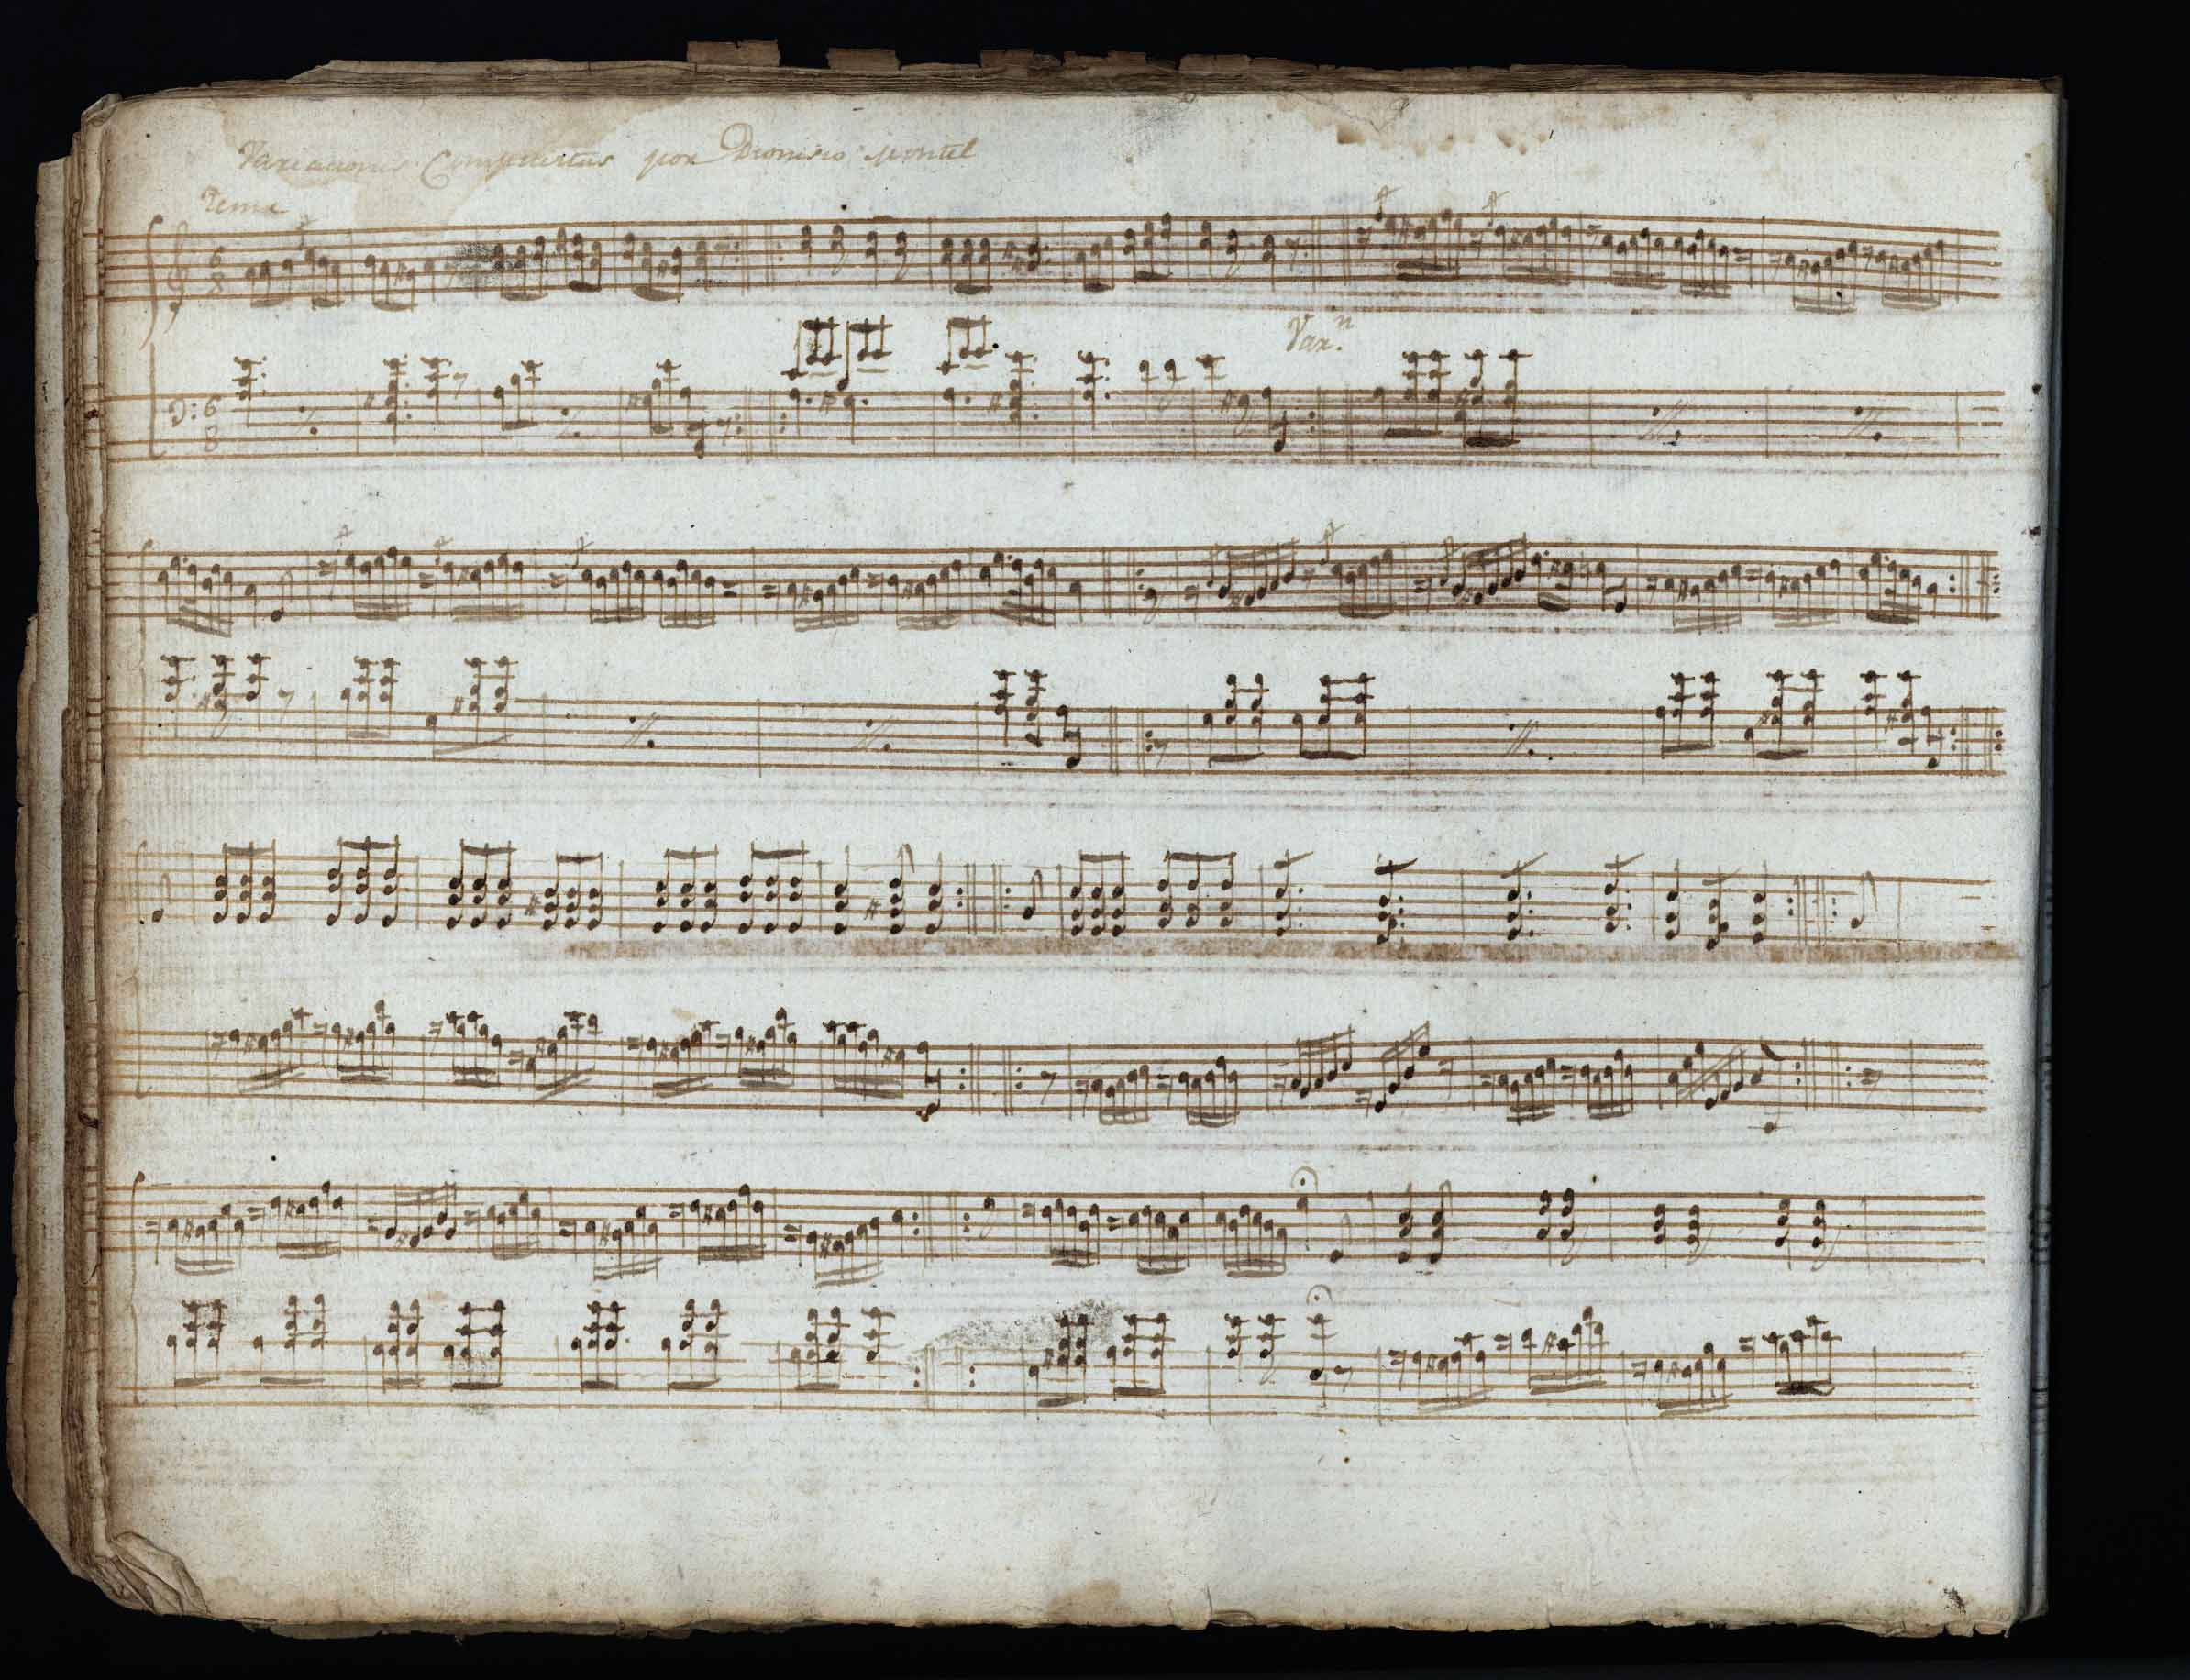 Variaciones Compuestas por Dionisio Montel
Tema
6
8
6
8
Var.n